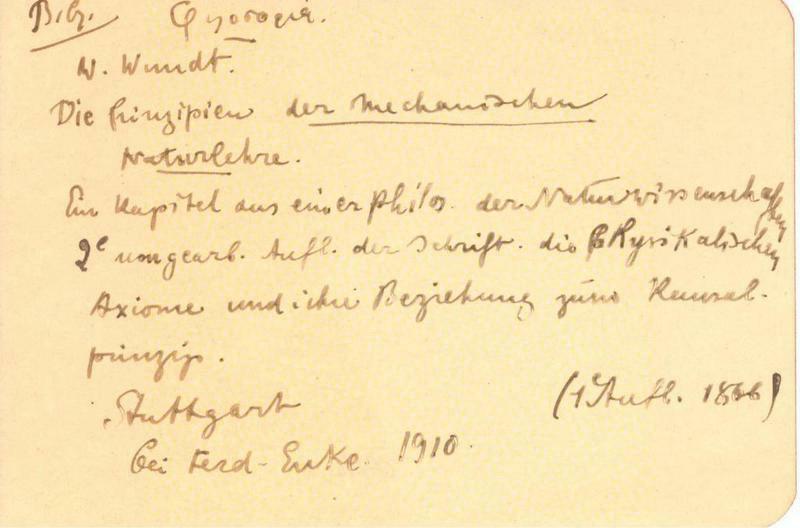 Bibl.
W. Wundt.
Die Prinzipien der mechanischen
Naturlehre.
Ein Kapitel aus einer Philos. der Naturwissenschaften
2e umgearb. Aufl. der Schrift. die Physikalischen
Axiome und ihre Beziehung zum Kausal-
prinzip.
Stuttgart (1e Aufl. 1866)
bei Ferd. Enke. 1910.